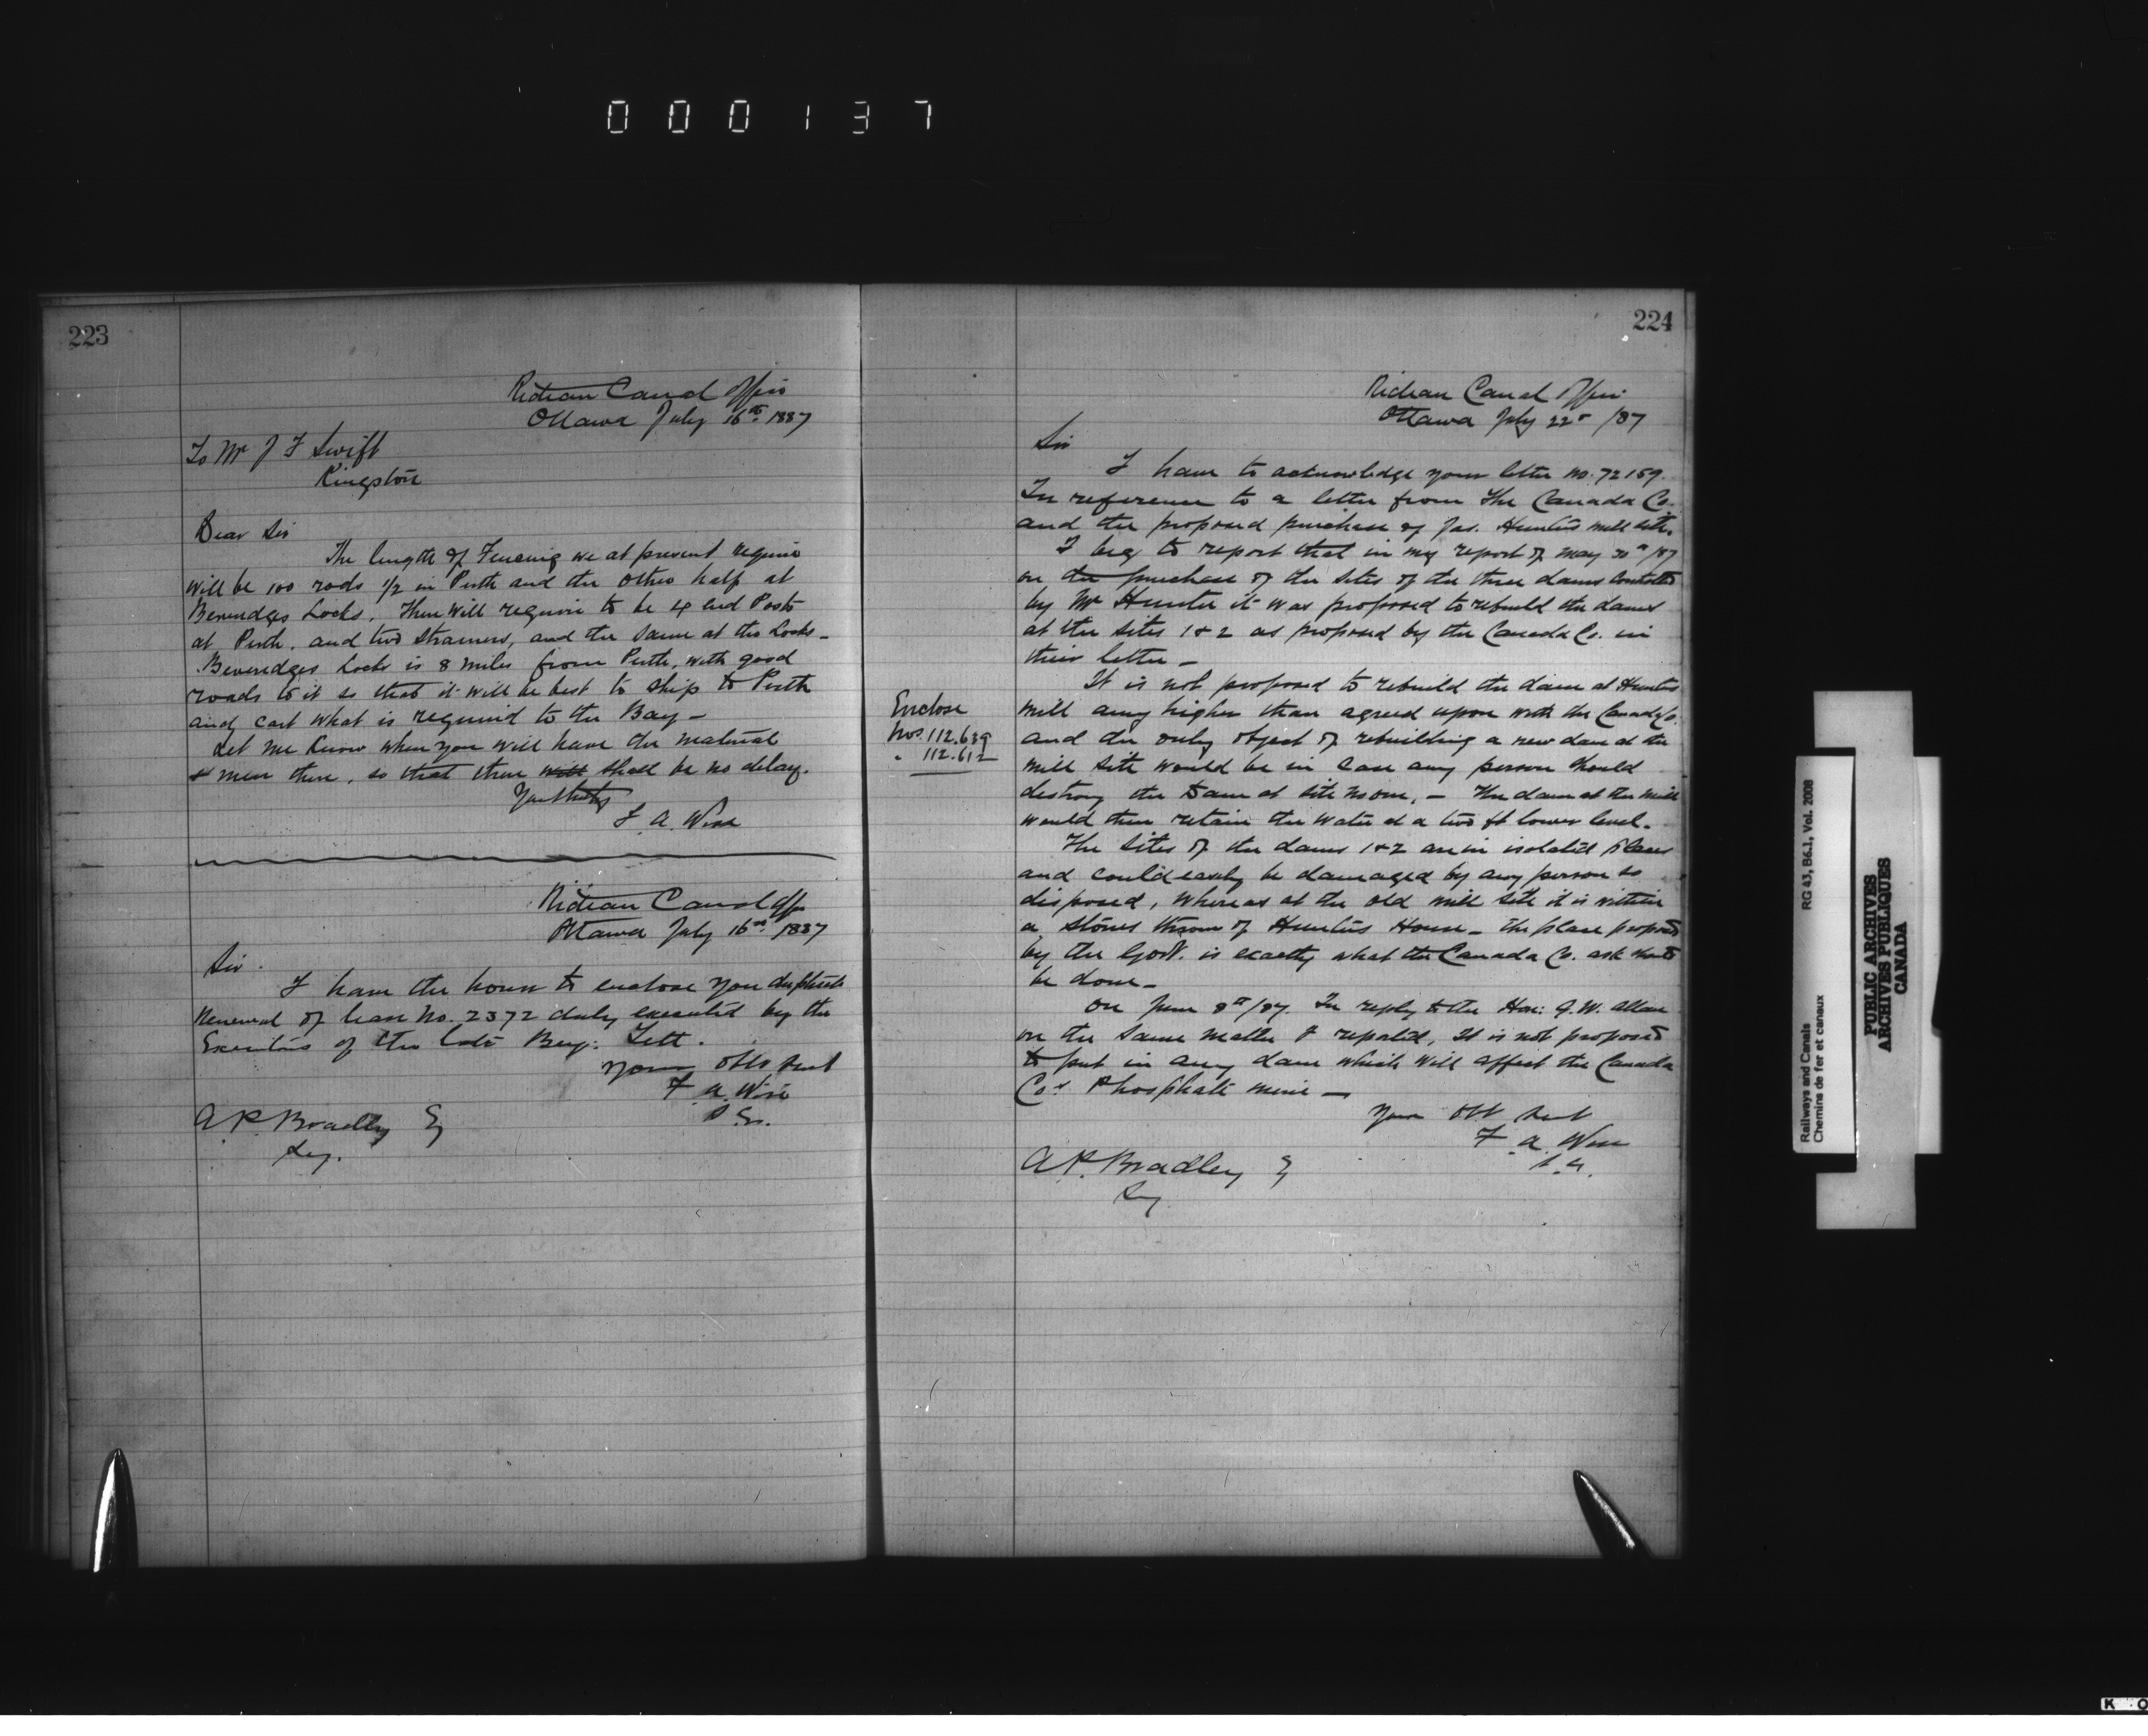 000137
223
Rideau Canal Office
Ottawa July 16th 1887
To Mr J F Swift
Kingston
Dear Sir
The length of Fencing we at present require
will be 100 rods 1/2 in Perth and the other half at
Beveridges Locks. There will require to be 4 End Posts
at Perth. and two strainers, and the same at the Locks -
Beveridges Locks is 8 miles from Perth, with good
roads to it so that it will be best to ship to Perth
and cart what is required to the Bay -
Let me know when you will have the material
& men there, so that there will shall be no delay.
Yours truly
F. A. Wise
Rideau Canal Office
Ottawa July 16th 1887
Sir.
I have the honor to enclose you duplicate
Renewal of lease No. 2372 duly executed by the
Executors of the late Benj: Tett.
Your Obt Svt
F. A. Wise
A. P. Bradley Esq
Secy.
224
Rideau Canal Office
Ottawa July 22 /87
Sir
I have to acknowledge your letter No. 72159.
In reference to a letter from the Canada Co.
and the proposed purchase of Jas. Hunters mill site.
I beg to report that in my report of May 30th/87
on the purchase of the sites of the three dams controlled
by Mr Hunter it was proposed to rebuild the dams
at the sites 1 & 2 as proposed by the Canada Co. in
their letter -
It is not proposed to rebuild the dam at Hunters
mill any higher than agreed upon with the Canada Co.
and the only object of rebuilding a new dam at the
mill site would be in case any person should
destroy the Dam at site No one. - The dam at the mill
would then retain the water at a two ft lower level.
The sites of the dams 1 & 2 are in isolated places
and could easily be damaged by any person so
disposed, whereas at the old mill site it is within
a stones throw of Hunters House - the place proposed
by the Govt. is exactly what the Canada Co. ask should
be done -
On June 8th/87. In reply to the Hon: G. W. Allan
on the same matter I reported, It is not proposed
to put in any dam which will affect the Canada
Co's Phosphate mine -
Your Obt Svt
F. A. Wise
A. P. Bradley Esq
Secy
Enclose
Nos. 112.639
" 112.612
Railways and Canals
Chemins de fer et canaux
RG 43, B6.1, Vol. 2008
PUBLIC ARCHIVES
ARCHIVES PUBLIQUES
CANADA
K O